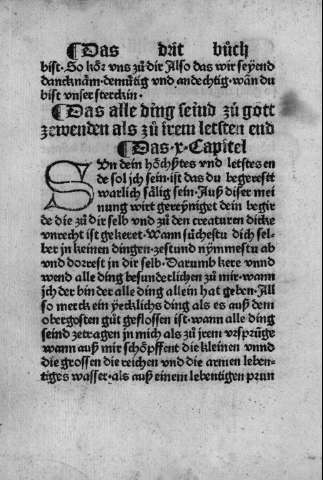 ¶Das drit bůch
bist. So kör vns zů dir Also das wir seyend
dancknäm. demůtig vnd andechtig. wan du
bist vnser sterckin.
¶Das alle ding seind zů gott
zewenden als zů irem letsten end
¶Das .x. Capitel
SVn dein höchstes vnd letstes en
de sol jch sein. ist das du begerest
warlich sälig sein. Auß diser mei
nung wirt gereyniget dein begir
de die zů dir selb vnd zů den creaturen dicke
vnrecht ist gekeret. Wann sůchestu dich sel-
ber jn keinen dingen. zestund nymmestu ab
vnd dorrest jn dir selb. Darumb kere vnnd
wend alle ding besunderlichen zů mir. wann
jch der bin der alle ding allein hat geben. Al
so merck ein yecklichs ding als es auß dem
obergosten gůt geflossen ist. wann alle ding
seind zetragen jn mich als zů jrem vrsprüge
wann auß mir schöpffent die kleinen vnnd
die grossen die reichen vnd die armen leben-
tiges wasser. als auß einem lebentigen prun